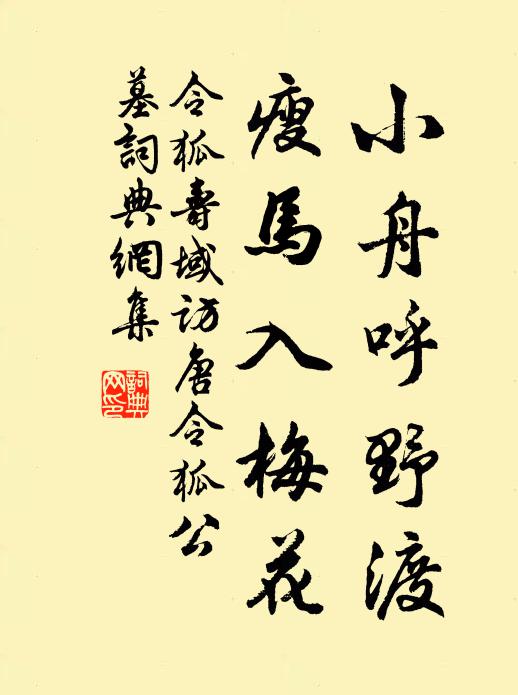 小舟呼野渡
瘦馬入梅花
令狐壽域訪唐令狐公
墓詞典網集
詞典
网印